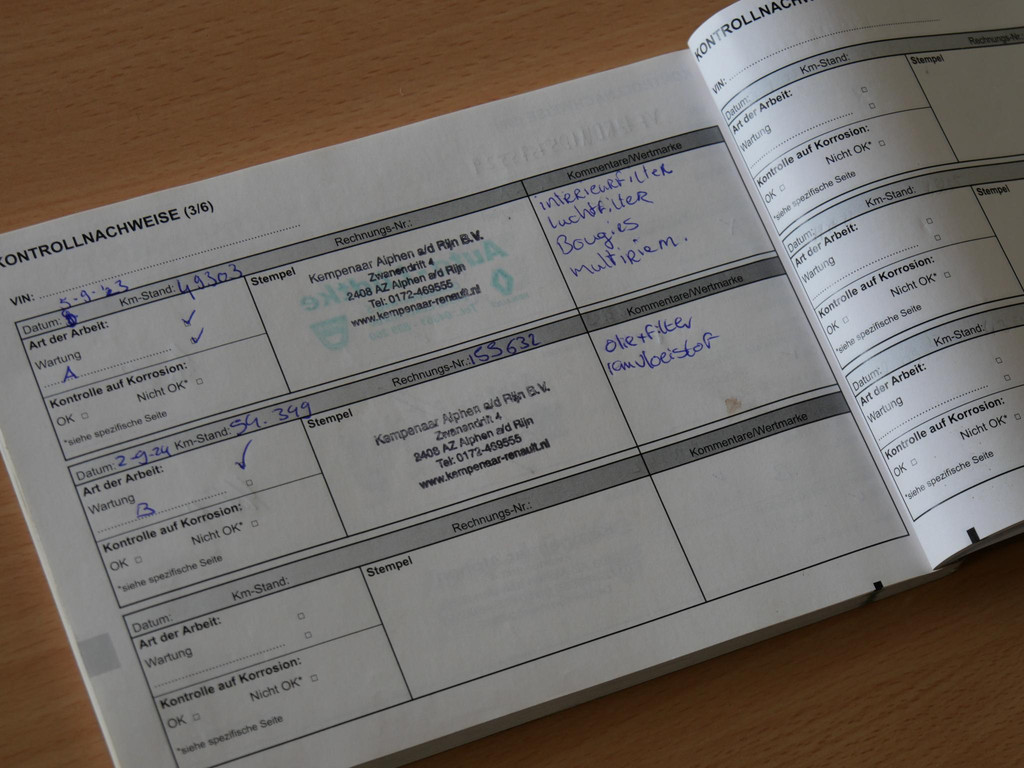 KONTROLLNACHWEISE (3/6)
VIN:
Rechnungs-Nr.:
Kommentare/Wertmarke
Datum: 5-9-'23 Km-Stand: 49303
Stempel
Art der Arbeit:
Wartung
A
Kontrolle auf Korrosion:
OK Nicht OK*
*siehe spezifische Seite
Kempenaar Alphen a/d Rijn B.V.
Zwanendrift 4
2408 AZ Alphen a/d Rijn
Tel: 0172-469555
www.kempenaar-renault.nl
interieurfilter
luchtfilter
Bougies
multiriem.
Rechnungs-Nr.: 155632
Kommentare/Wertmarke
Datum: 2-9-24 Km-Stand: 54.399
Stempel
Art der Arbeit:
Wartung
B
Kontrolle auf Korrosion:
OK Nicht OK*
*siehe spezifische Seite
Kempenaar Alphen a/d Rijn B.V.
Zwanendrift 4
2408 AZ Alphen a/d Rijn
Tel: 0172-469555
www.kempenaar-renault.nl
oliefilter
remvloeistof
Rechnungs-Nr.:
Kommentare/Wertmarke
Datum: Km-Stand:
Stempel
Art der Arbeit:
Wartung
Kontrolle auf Korrosion:
OK Nicht OK*
*siehe spezifische Seite
KONTROLLNACHW
VIN:
Rechnungs-Nr
Datum: Km-Stand:
Stempel
Art der Arbeit:
Wartung
Kontrolle auf Korrosion:
OK Nicht OK*
*siehe spezifische Seite
Datum: Km-Stand:
Stempel
Art der Arbeit:
Wartung
Kontrolle auf Korrosion:
OK Nicht OK*
*siehe spezifische Seite
Datum: Km-Stand:
Art der Arbeit:
Wartung
Kontrolle auf Korrosion:
OK Nicht OK*
*siehe spezifische Seite